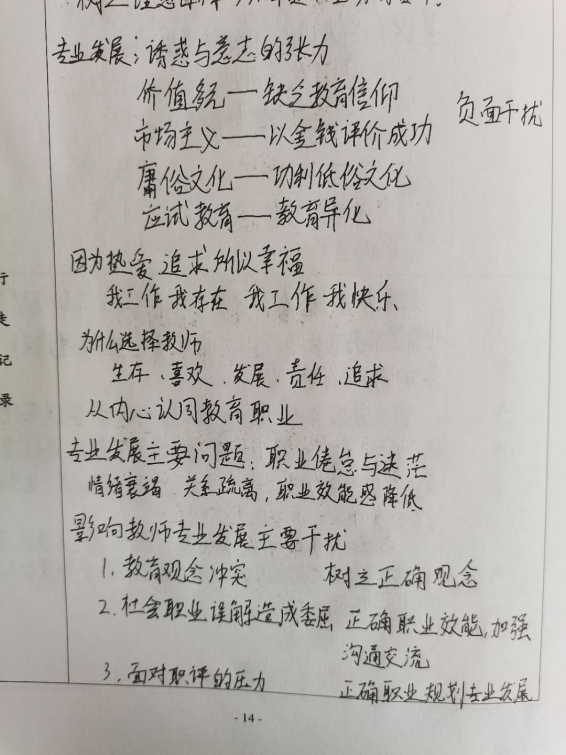 专业发展：诱惑与意志的张力
价值多元——缺乏教育信仰
市场主义——以金钱评价成功 负面干扰
庸俗文化——功利低俗文化
应试教育——教育异化
因为热爱 追求所以幸福
我工作 我存在 我工作 我快乐
为什么选择教师
生存、喜欢、发展、责任、追求
从内心认同教育职业
专业发展主要问题：职业倦怠与迷茫
情绪衰竭 关系疏离，职业效能感降低
影响教师专业发展主要干扰
1、教育观念冲突 树立正确观念
2、社会职业误解造成委屈 正确职业效能，加强
沟通交流
3、面对职评的压力 正确职业规划专业发展
记
录
- 14 -